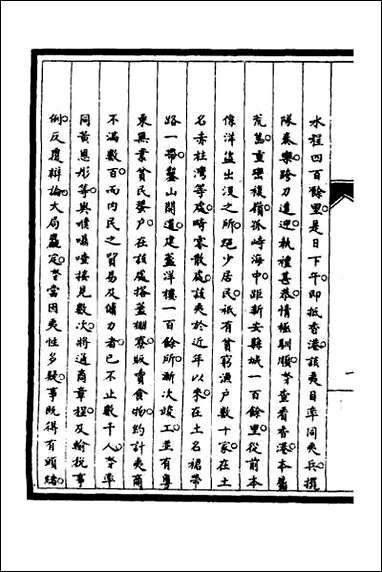 水程四百餘里是日下午即抵香港該夷目率同夷兵擺
隊奏樂跨刀道迎執禮甚恭情極馴順奴才查看香港本屬
荒島重巒複嶺孤峙海中距新安縣城一百餘里從前本
係洋盜出沒之所絕少居民祇有貧窮漁戶數十家在土
名赤柱灣等處畸零散處該夷於近年以來在土名裙帶
路一帶鑿山開道建蓋洋樓一百餘所漸次竣工並有粵
東無業貧民蜑戶在該處搭蓋棚寮販賣食物約計夷商
不滿數百而內民之貿易及傭力者已不止數千人奴才率
同黃恩彤等與噗喳接見數次將通商章程及輸稅事
例反覆辯論大局麤定奴才當因夷性多疑事既得有頭緒